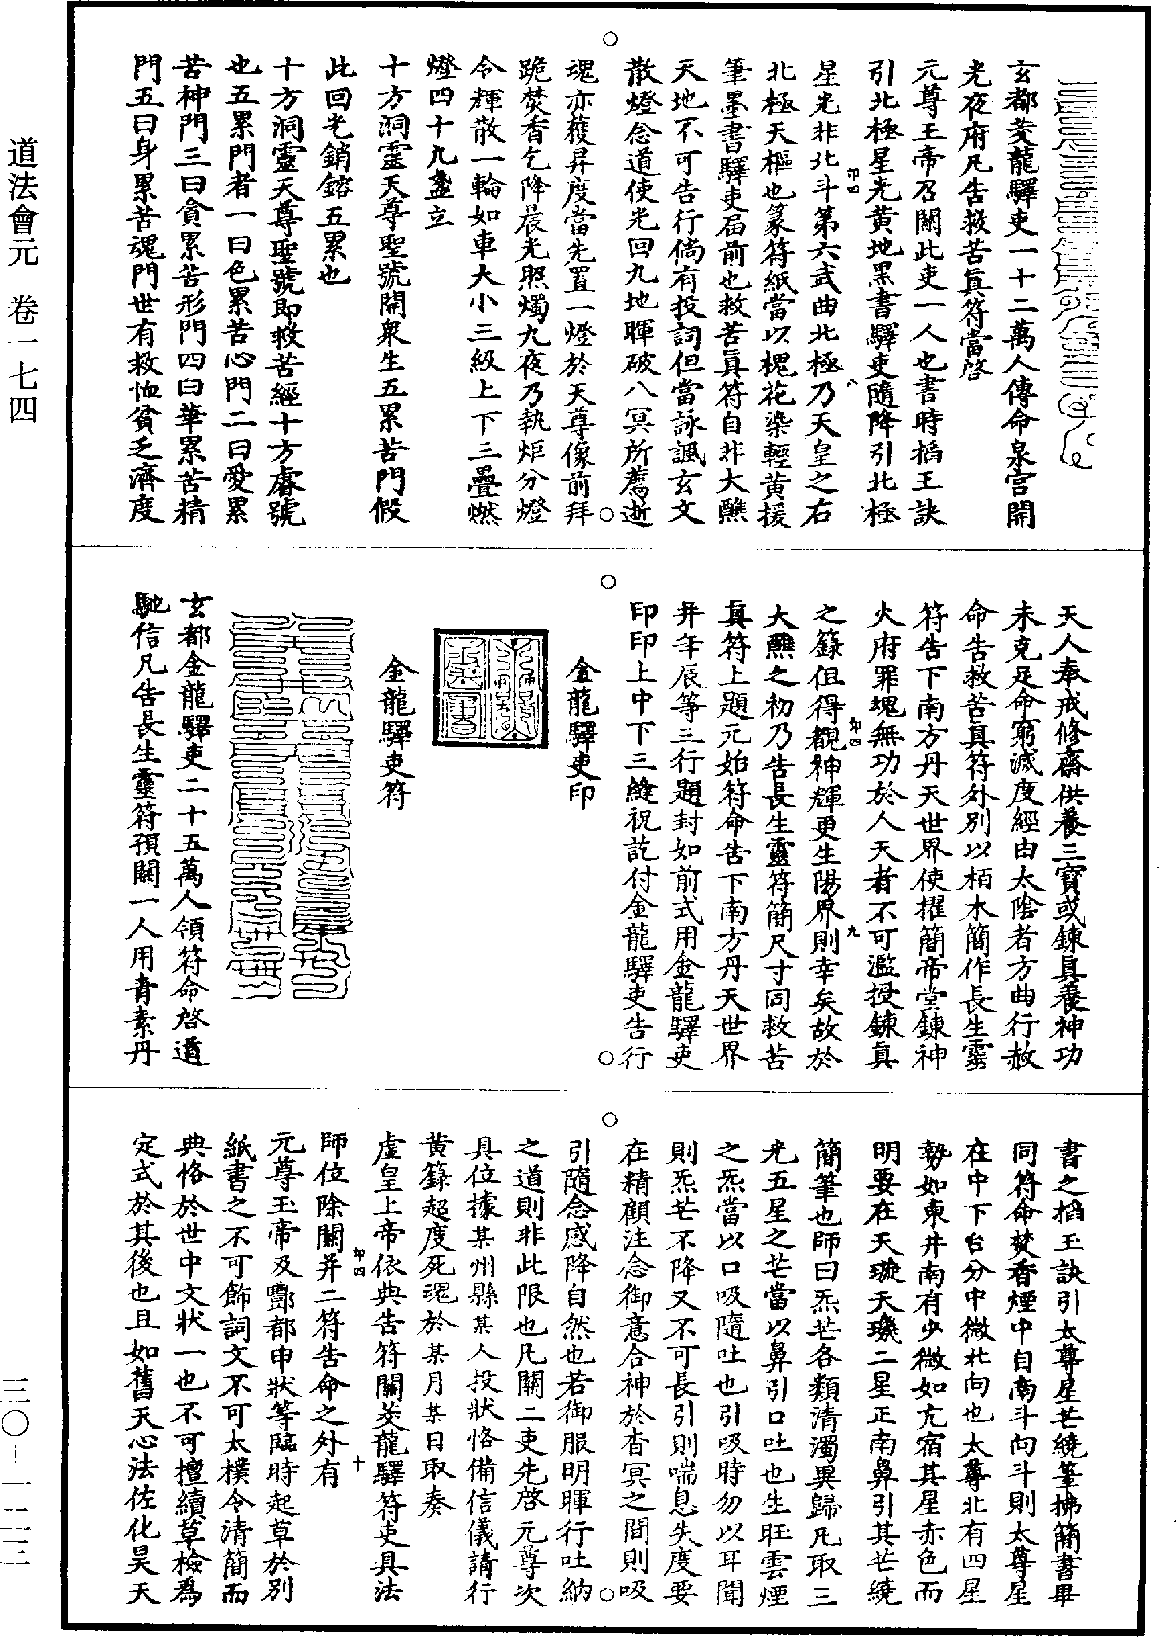 道法會元　卷一七四
三〇－一一二三
玄都茭龍驛吏一十二萬人傳命泉宮開
光夜府凡告救苦真符當啓
元尊玉帝召關此吏一人也書時掐玉訣
引北極星光黃地黑書驛吏隨降引北極
星光非北斗第六武曲北極乃天皇之右
北極天樞也篆符紙當以槐花染輕黃援
筆墨書驛吏届前也救苦真符自非大醮
天地不可告行倘有投詞但當詠諷玄文
散燈念道使光回九地暉破八冥所薦逝
魂亦獲昇度當先置一燈於天尊像前拜
跪焚香乞降晨光照燭九夜乃執炬分燈
令輝散一輪如車大小三級上下三疊燃
燈四十九盞立
十方洞靈天尊聖號開衆生五累苦門假
此回光銷鎔五累也
十方洞靈天尊聖號即救苦經十方睿號
也五累門者一曰色累苦心門二曰愛累
苦神門三曰貪累苦形門四曰華累苦精
門五曰身累苦魂門世有救恤貧乏濟度
天人奉戒修齋供養三寶或鍊真養神功
未克足命窮滅度經由太陰者方曲行赦
命告救苦真符外別以栢木簡作長生靈
符告下南方丹天世界使擢簡帝堂鍊神
火府罪塊無功於人天者不可濫授鍊真
之籙但得覩神輝更生陽界則幸矣故於
大醮之初乃告長生靈符簡尺寸同救苦
真符上題元始符命告下南方丹天世界
并年辰等三行題封如前式用金龍驛吏
印印上中下三縫祝訖付金龍驛吏告行
金龍驛吏印
金龍驛吏符
玄都金龍驛吏二十五萬人領符命啓道
馳信凡告長生靈符預關一人用青素丹
書之掐玉訣引太尊星芒繞筆拂簡書畢
同符命焚香煙中自南斗向斗則太尊星
在中下台分中微北向也太尊北有四星
勢如東井南有少微如亢宿其星赤色而
明要在天璇天璣二星正南鼻引其芒繞
簡筆也師曰炁芒各類清濁異歸凡取三
光五星之芒當以鼻引口吐也生旺雲煙
之炁當以口吸隨吐也引吸時勿以耳聞
則炁芒不降又不可長引則喘息失度要
在精顧注念御意合神於杳冥之間則吸
引隨念感降自然也若御服明暉行吐納
之道則非此限也凡關二吏先啓元尊次
具位據某州縣某人投狀恪備信儀請行
黃籙超度死魂於某月某日取奏
虛皇上帝依典告符關茭龍驛符吏具法
師位除關并二符告命之外有
元尊玉帝及酆都申狀等臨時起草於別
紙書之不可飾詞文不可太樸令清簡而
典恪於世中文狀一也不可擅續草檢為
定式於其後也且如舊天心法佐化昊天